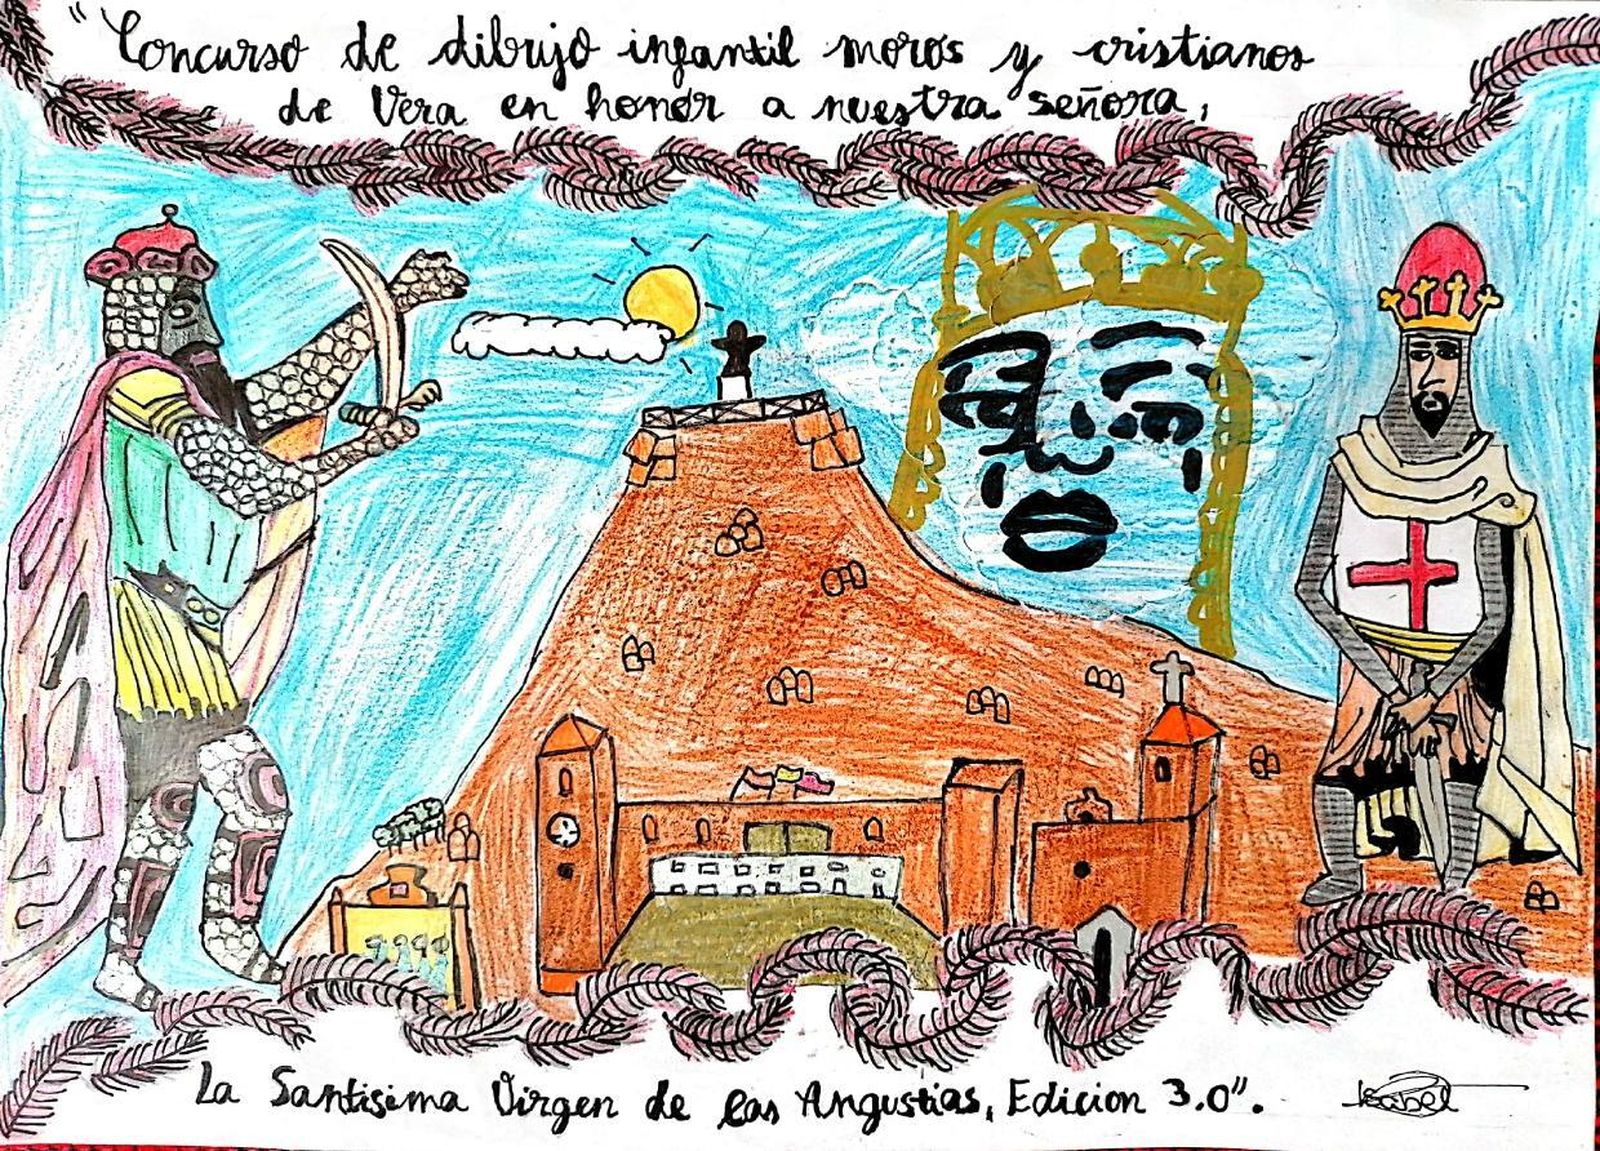 "Concurso de dibujo infantil moros y cristianos
de Vera en honor a nuestra señora,
La Santisima Virgen de las Angustias, Edicion 3.0".
Isabel